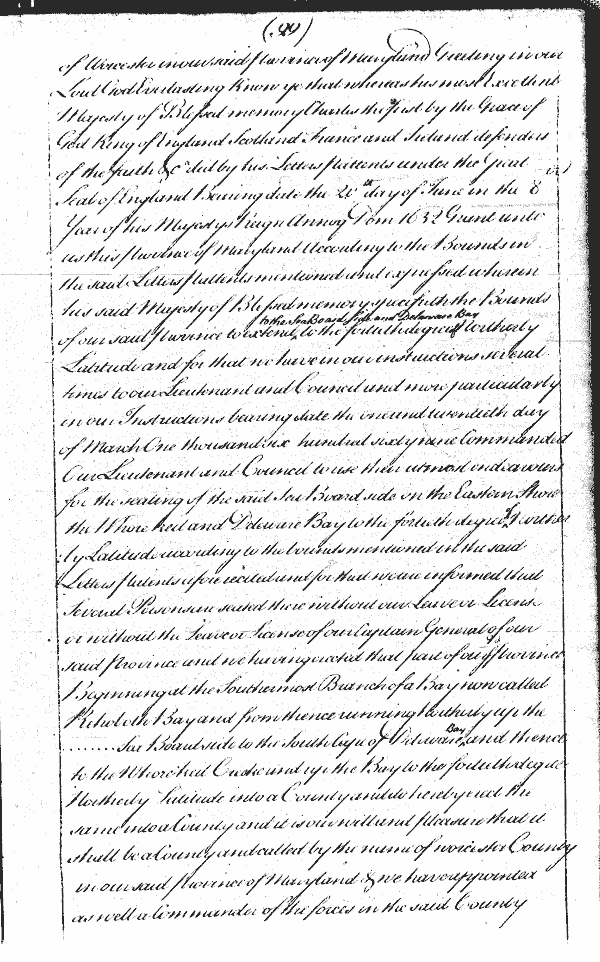 (99)
of Worcester in our said Province of Maryland Greeting in our
Lord God Everlasting Know ye that whereas his most Excellent
Majesty of Blessed memory Charles the First by the Grace of
God King of England Scotland France and Ireland defender
of the faith &c did by his Letters Pattents under the Great
Seal of England Bearing date the 20th day of June in the 8
Year of his Majestys Reign Annoq Dom 1632 Grant unto
us this Province of Maryland According to the Bounds in
the said Letters Pattents mentioned and expressed wherein
his said Majesty of Blessed memory specifieth the Bounds
to the Sea Board side and Delaware Bay
of our said Province to extend, to the fortieth degree Northerly
Latitude and for that we have in our instructions several
times to our Lieutenant and Council and more particularly
in our Instructions bearing date the one and twentieth day
of March One thousand six hundred sixty nine Commanded
Our Lieutenant and Council to use their utmost endeavours
for the seating of the said Sea Board side on the Eastern Shore
the Whore ked and Delaware Bay to the fortieth degree Norther
ly Latitude according to the bounds mentioned in the said
Letters Patents afore recited and for that we are informed that
Several Persons are seated there without our Leave or License
or without the Leave or License of our Captain General of our
said Province and we having erected that part of our sd Province
Beginning at the Southermost Branch of a Bay now called
Rehoboth Bay and from thence running Northerly up the
........ Sea Board side to the South Cape of Delaware and thence
Bay
to the Whore ked Creeke and up the Bay to the fortieth degree
Northerly Latitude into a County and do hereby erect the
same into a County and it is our will and pleasure that it
shall be a County and called by the name of worcester County
in our said Province of Maryland & we have appointed
as well a Commander of the forces in the said County